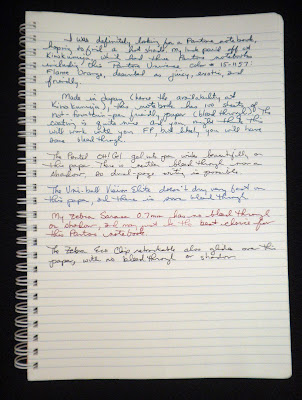 I was definitely looking for a Pantone notebook,
hoping to find a
Kinokuniya had these Pantone notebooks
including this Pantone Universe color # 15-1157
Flame Orange, described as juicy, exotic, and
friendly.
Made in Japan (hence the availability at
Kinokuniya), this notebook has 100 sheets of
not-fountain-pen friendly paper (bleedthrough). The
coating is quite nice and you might think this
will work with your FP, but likely you will have
some bleedthrough.
The Pentel gel ink pen writes beautifully on
this paper. There is neither bleedthrough nor
shadow, so dual-page writing is possible.
The Uni-ball Vision Elite doesn't dry very fast on
this paper, and there is some bleedthrough.
My Zebra Sarasa 0.7mm has no bleedthrough
or shadow, and may just be the best choice for
this Pantone notebook.
The Zebra Eco Clip retractable also glides over the
paper, with no bleedthrough or shadow.